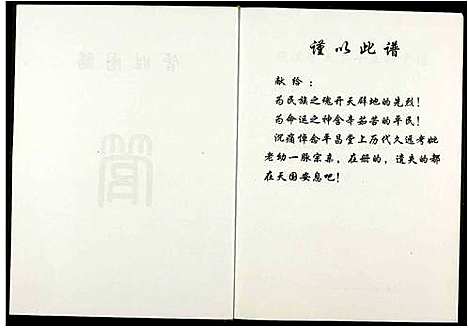 谨以此谱
献给：
为民族之魂开天辟地的先烈！
为命运之神含辛茹苦的平民！
沉痛悼念平昌堂上历代久远考妣
老幼一脉宗亲，在册的，遗失的都
在天国安息吧！